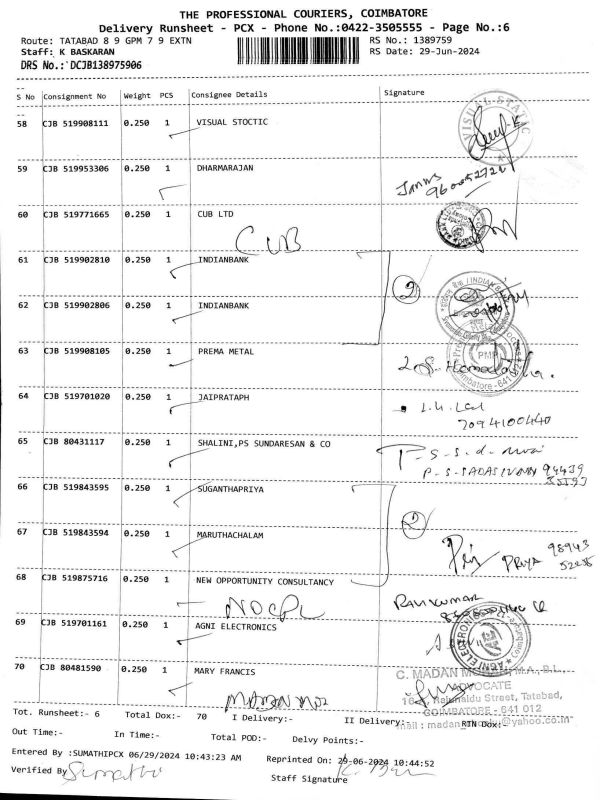 THE PROFESSIONAL COURIERS, COIMBATORE
Delivery Runsheet - PCX - Phone No.:0422-3505555 - Page No.:6
Route: TATABAD 8 9 GPM 7 9 EXTN RS No.: 1389759
Staff: K BASKARAN RS Date: 29-Jun-2024
DRS No.: DCJB138975906
S No Consignment No Weight PCS Consignee Details Signature
58 CJB 519908111 0.250 1 VISUAL STOCTIC
VISUAL STATIC
59 CJB 519953306 0.250 1 DHARMARAJAN
60 CJB 519771665 0.250 1 CUB LTD
CUB
61 CJB 519902810 0.250 1 INDIANBANK
2
62 CJB 519902806 0.250 1 INDIANBANK
63 CJB 519908105 0.250 1 PREMA METAL
PMP
Coimbatore - 641
64 CJB 519701020 0.250 1 JAIPRATAPH
7094100440
65 CJB 80431117 0.250 1 SHALINI,PS SUNDARESAN & CO
66 CJB 519843595 0.250 1 SUGANTHAPRIYA
2
67 CJB 519843594 0.250 1 MARUTHACHALAM
PRIYA 98943
68 CJB 519875716 0.250 1 NEW OPPORTUNITY CONSULTANCY
NOCPL
Ravikumar
69 CJB 519701161 0.250 1 AGNI ELECTRONICS
AGNI ELECTRONICS
70 CJB 80481590 0.250 1 MARY FRANCIS
C. MADAN M.A., B.L.,
ADVOCATE
Street, Tatabad,
COIMBATORE - 641 012
Tot. Runsheet:- 6 Total Dox:- 70 I Delivery:- II Delivery:- RTN Dox:-
@yahoo.co.in
Out Time:- In Time:- Total POD:- Delvy Points:-
Entered By :SUMATHIPCX 06/29/2024 10:43:23 AM Reprinted On: 29-06-2024 10:44:52
Verified By Sumathi Staff Signature